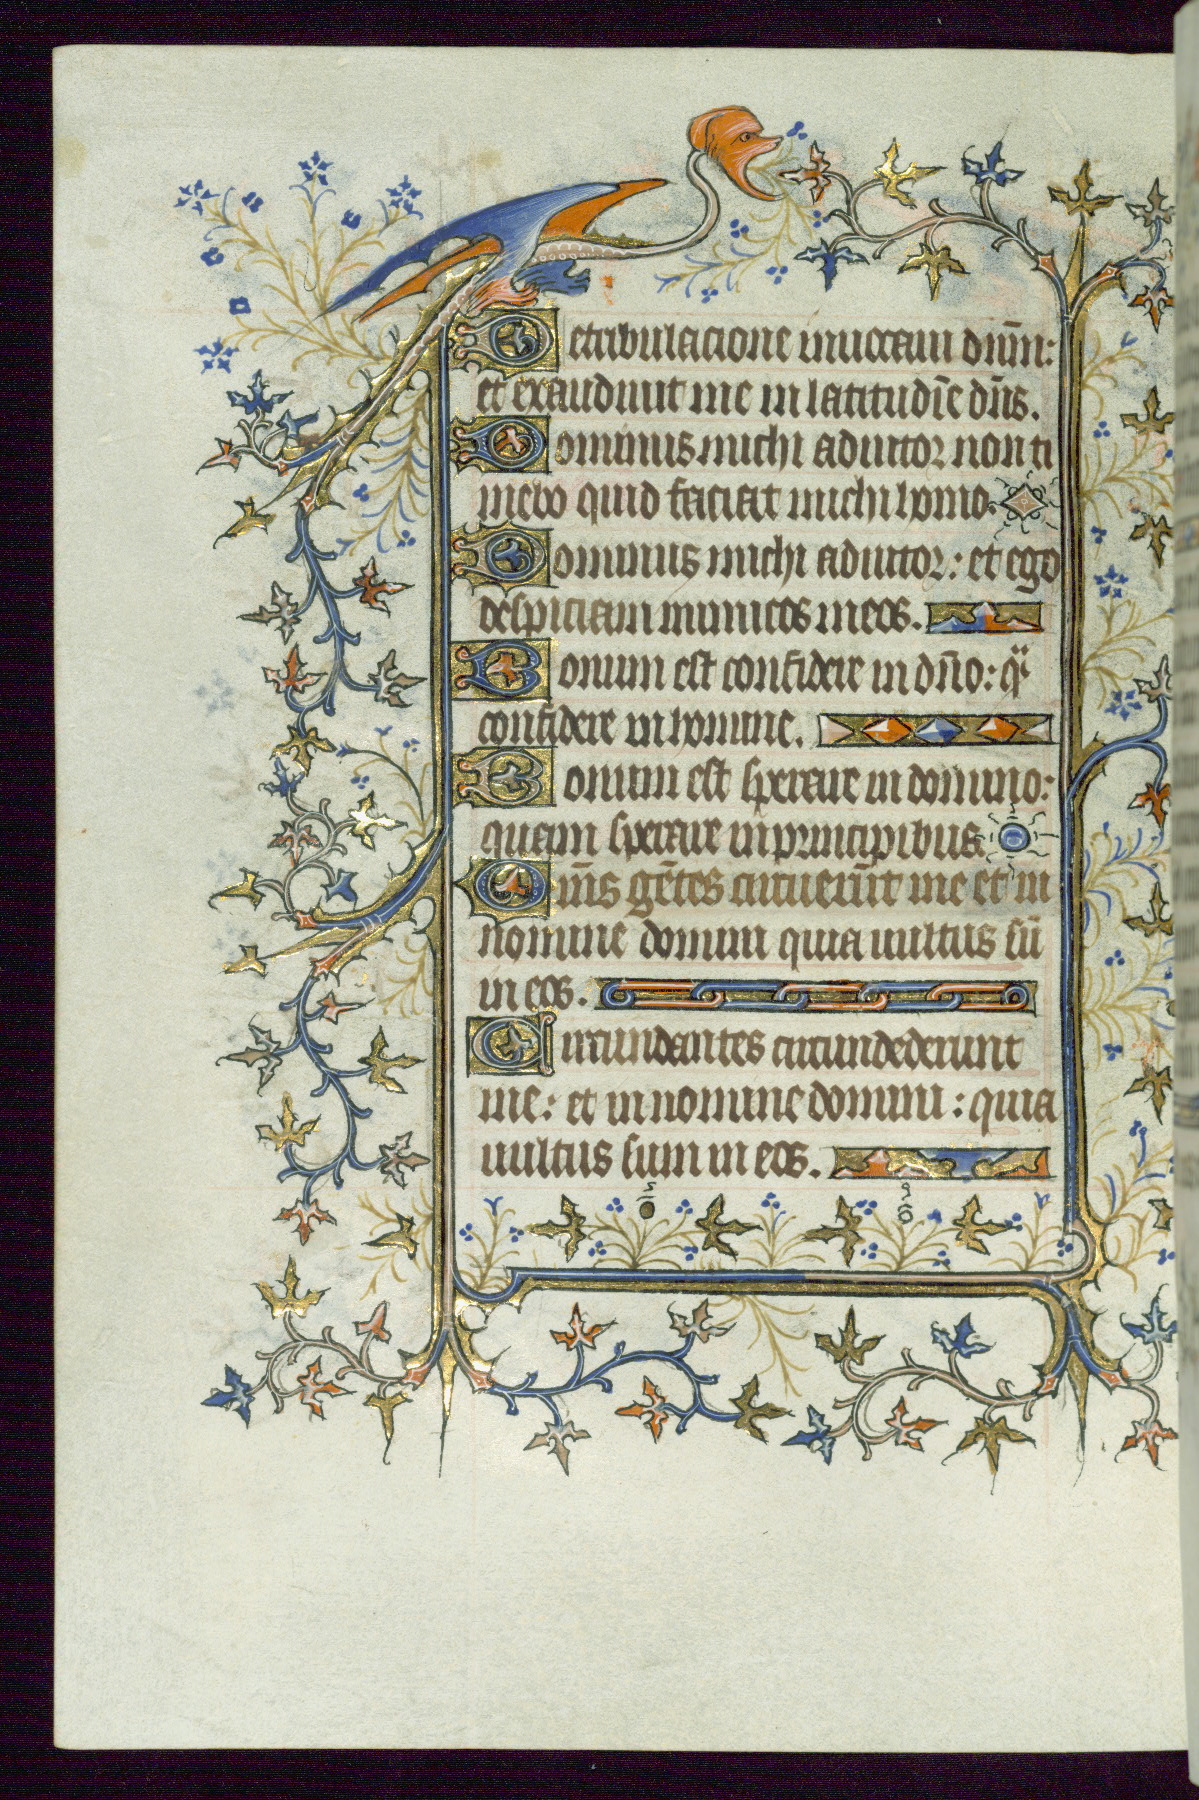 Detribulacione inuocaui dn̄m:
et exaudiuit me in latitudīe dn̄s.
Dominus michi adiutor non ti
mebo quid faciat michi homo.
Dominus michi adiutor: et ego
despiciam inimicos meos.
Bonum est confidere in dn̄o: qͣ
confidere in homine.
Bonum est sperare in domino:
quam sperare in principibus.
Om̄s gētes circuierūt me et in
nomine domini quia uultus sū
in eos.
Circundantes circundederunt
me: et in nomine domini: quia
uultus sum in eos.